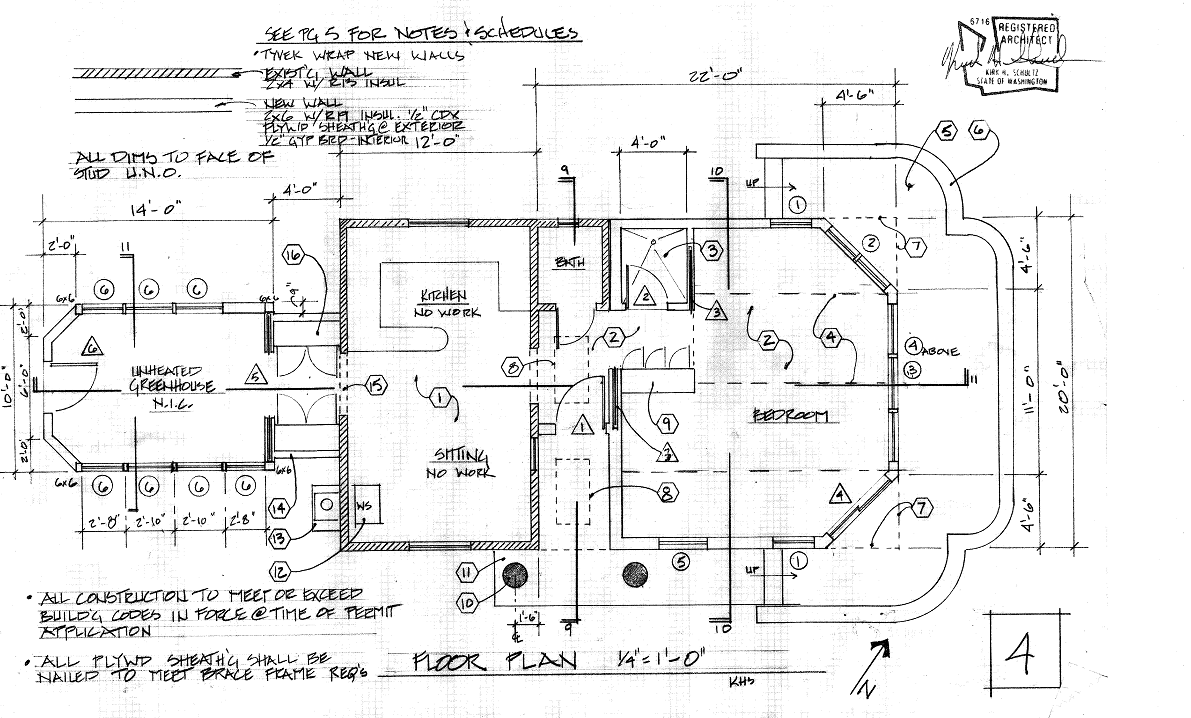 SEE PG 5 FOR NOTES & SCHEDULES
• TYVEK WRAP NEW WALLS
EXIST'G WALL
2x4 W/R13 INSUL
NEW WALL
2x6 W/R19 INSUL. 1/2" CDX
PLYWD SHEATH'G @ EXTERIOR
1/2" GYP BRD - INTERIOR
ALL DIMS TO FACE OF
STUD U.N.O.
6716
REGISTERED
ARCHITECT
KIRK H. SCHULTZ
STATE OF WASHINGTON
22'-0"
4'-6"
12'-0"
4'-0"
4'-0"
14'-0"
2'-0"
9
10
UP
5
6
1
2
7
11
16
3
BATH
6x6
6
6
6
6x6
9"
KITCHEN
NO WORK
2
3
2
2
4
4'-6"
4 ABOVE
3
11
11'-0"
20'-0"
4'-6"
2'-0"
10'-0"
6'-0"
2'-0"
6
UNHEATED
GREENHOUSE
N.I.C.
5
15
8
1
1
9
BEDROOM
SITTING
NO WORK
8
4
7
6x6
6x6
6
6
6
6
2'-8"
2'-10"
2'-10"
2'-8"
11
14
13
12
WS
11
10
5
1
UP
1'-6"
9
10
• ALL CONSTRUCTION TO MEET OR EXCEED
BUILD'G CODES IN FORCE @ TIME OF PERMIT
APPLICATION
• ALL PLYWD SHEATH'G SHALL BE
NAILED TO MEET BRACE FRAME REQ'S
FLOOR PLAN 1/4" = 1'-0"
KHS
N
4